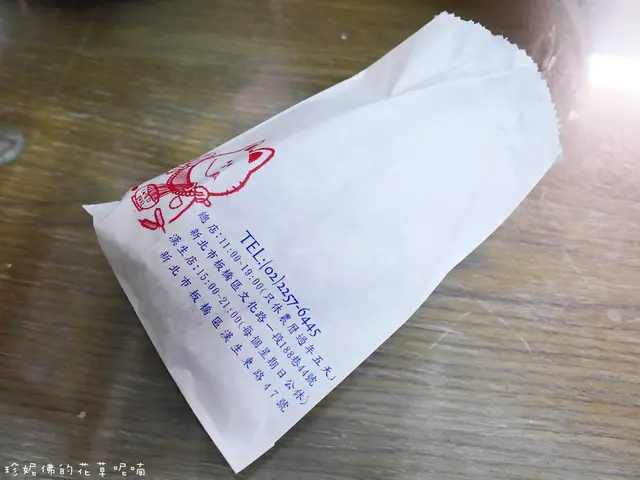 TEL:(02)2257-6445
總店:11:00-19:00(只休農曆過年五天)
新北市板橋區文化路一段188巷44號
漢生店:15:00-21:00(每個星期日公休)
新北市板橋區漢生東路47號
珍妮佛的花草呢喃